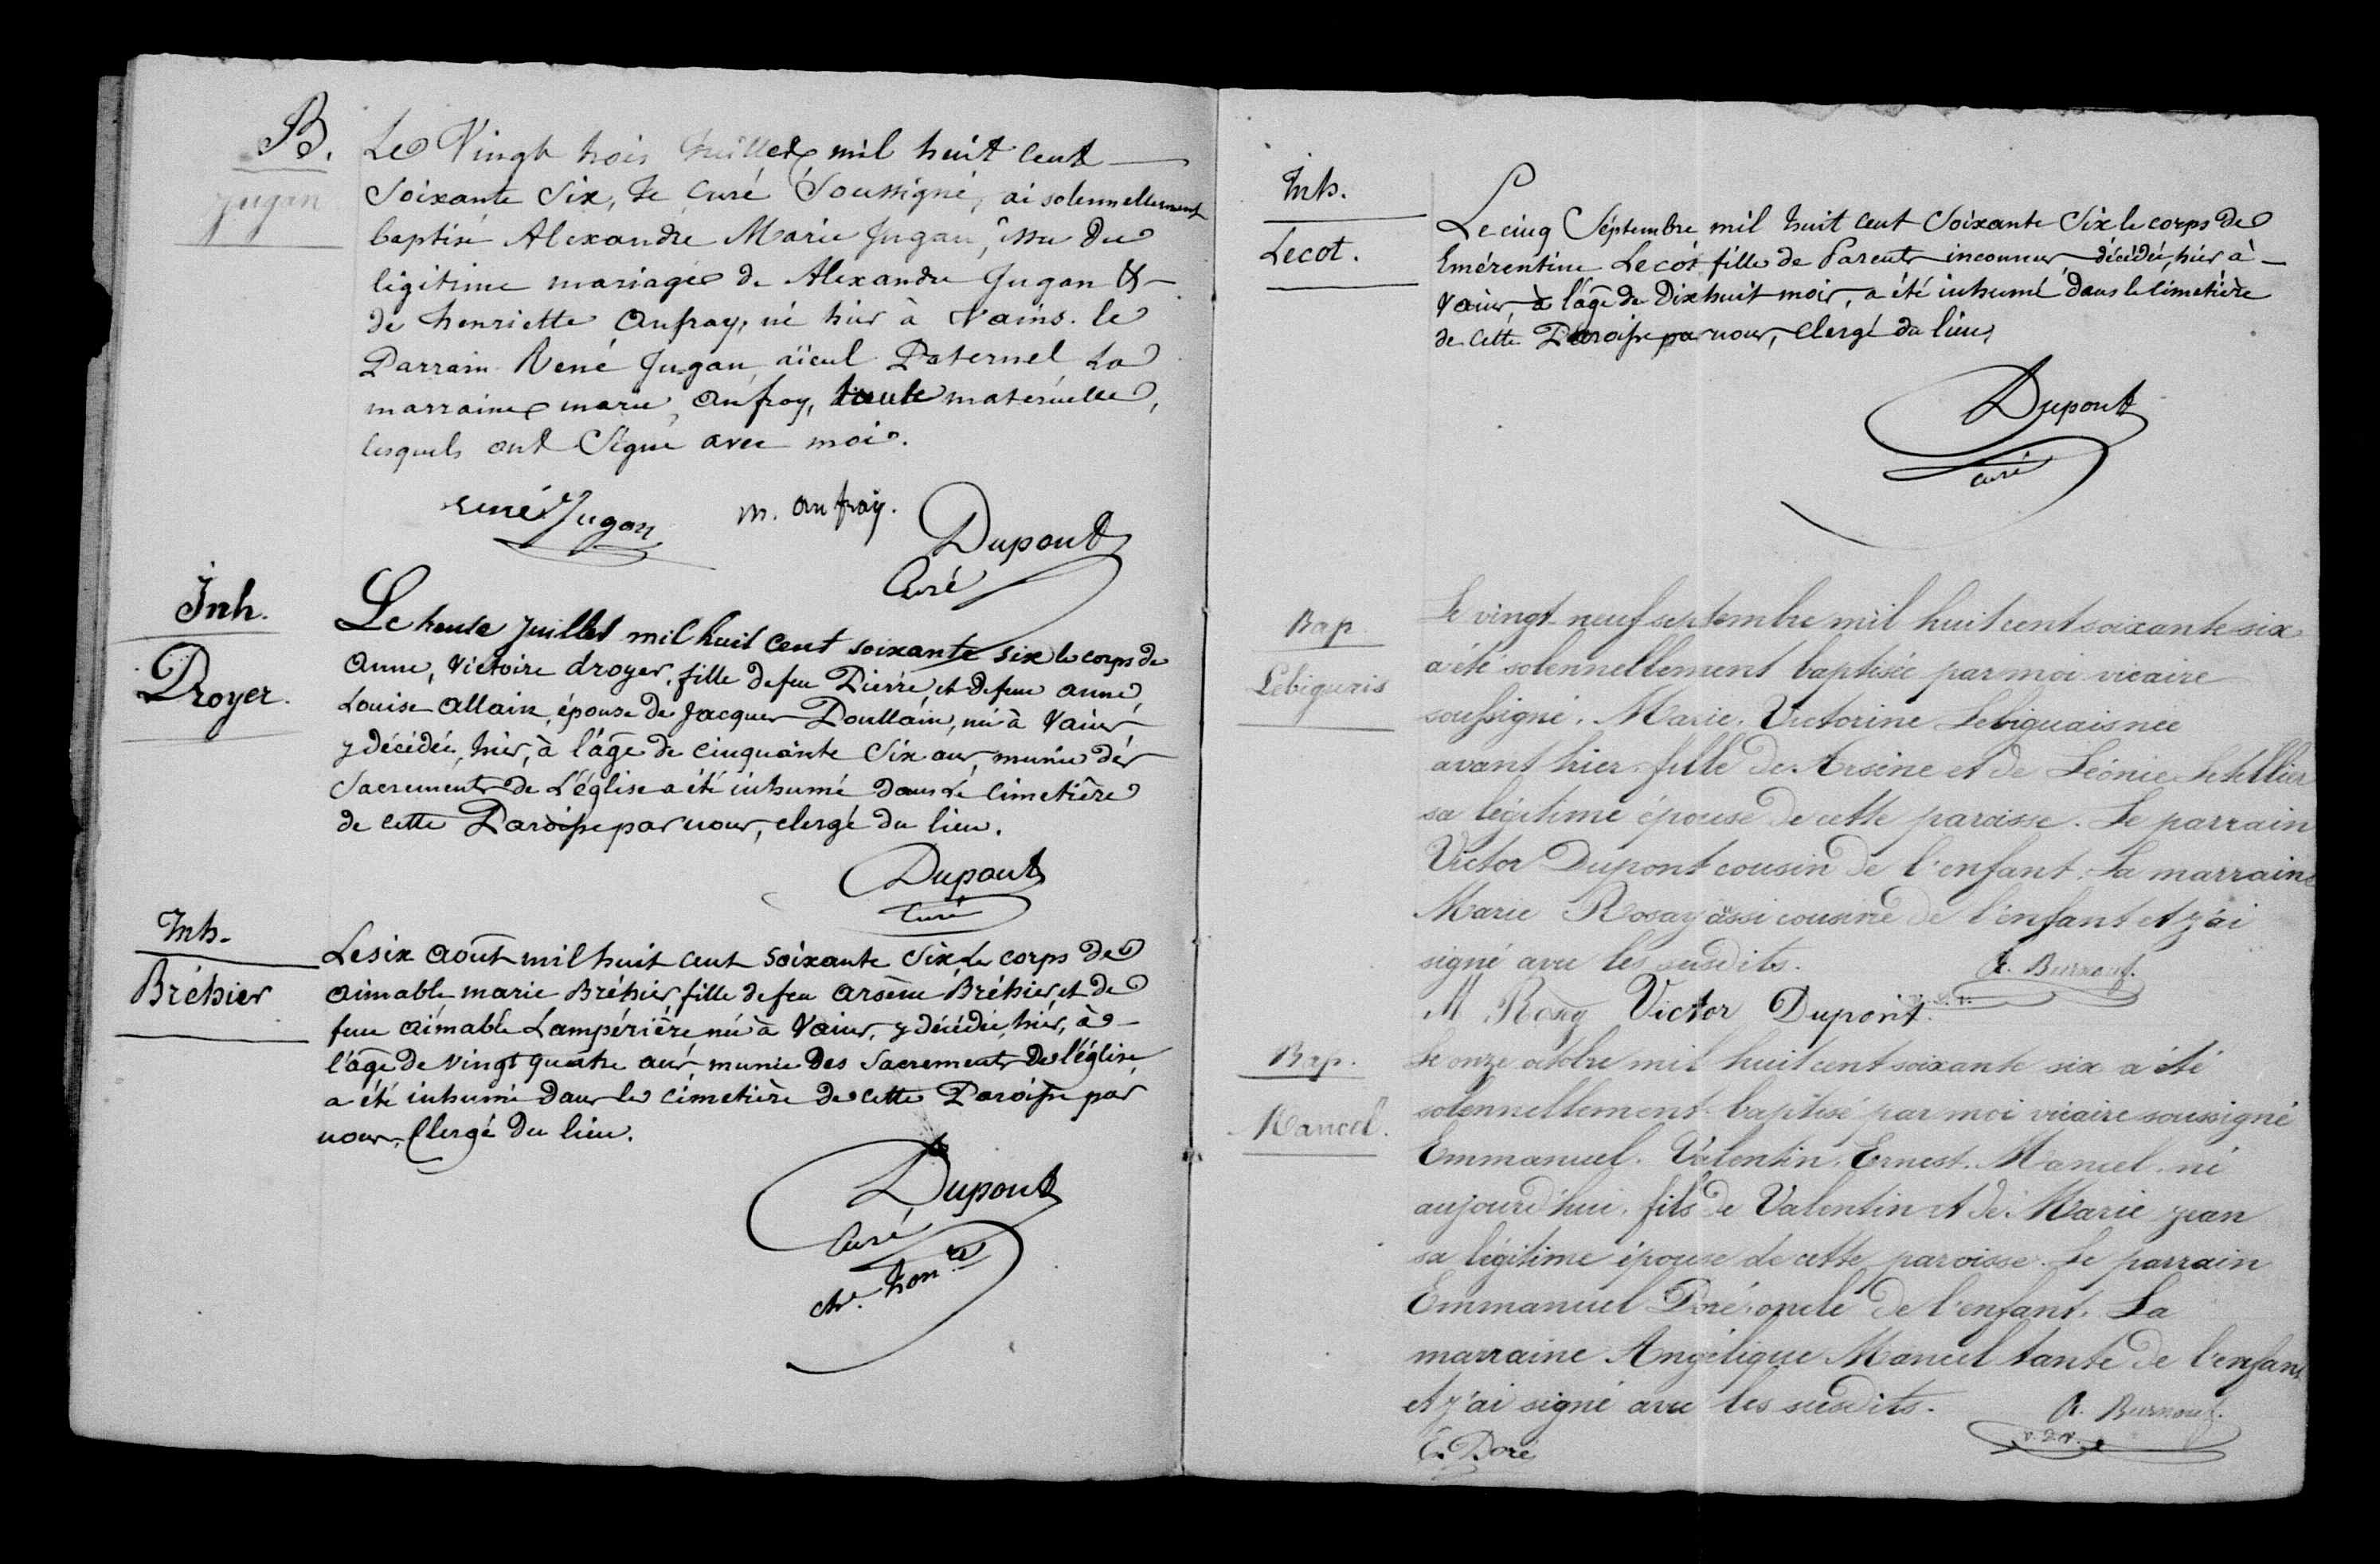 B.
Jugan
Le Vingt trois Juillet mil huit cent
Soixante Six, Je Curé Soussigné, ai solennellement
baptisé Alexandre Marie Jugan, issu du
légitime mariage de Alexandre Jugan &
de henriette Aufray, né hier à Vains. le
Parrain René Jugan, aïeul Paternel La
marraine marie Aufray, tante maternelle,
lesquels ont Signé avec moi.
rené Jugan m. aufray. Dupont
Curé
Inh.
Droyer.
Le trente Juillet mil huit cent soixante six le corps de
Anne, Victoire droyer, fille de feu Pierre, et de feue anne,
Louise Allain, épouse de Jacques Doullain, né à Vains,
y décédée, hier, à l'âge de cinquante Six ans, munie des
Sacrements de L'église a été inhumé dans le Cimetière
de cette Paroisse par nous, clergé du lieu.
Dupont
Curé
Inh.
Bréhier
Le six Août mil huit cent soixante Six Le corps de
aimable marie Bréhier, fille de feu Arsène Bréhier, et de
feue Aimable Lampérière, né à Vains, y décédée, hier, à
l'âge de vingt quatre ans, munie des Sacrements de l'église,
a été inhumé dans le cimetière de cette Paroisse par
nous, Clergé du lieu.
Dupont
Curé
ch. hon re
Inh.
Lecot.
Le cinq Séptembre mil huit cent Soixante Six le corps de
Emérentine Lecot fille de Parents inconnus, décédée, hier à
Vains, à l'âge de Dix huit mois, a été inhumé dans le cimetière
de cette Paroisse par nous, Clergé du lieu,
Dupont
curé
Bap.
Lebiguais
Le vingt neuf septembre mil huit cent soixante six
a été solennellement baptisée par moi vicaire
soussigné. Marie. Victorine Lebiguais née
avant hier. fille de Arsène et de Léonie Letellier
sa légitime épouse de cette paroisse. Le parrain
Victor Dupont cousin de l'enfant. La marraine
Marie Rosay aussi cousine de l'enfant et j'ai
signé avec les susdits.
A. Burnouf.
M Rosay Victor Dupont.
Bap.
Mancel.
Le onze octobre mil huit cent soixante six a été
solennellement baptisé par moi vicaire soussigné
Emmanuel. Valentin. Ernest. Mancel. né
aujourd'hui. fils de Valentin et de Marie jean
sa légitime épouse de cette paroisse. Le parrain
Emmanuel Doré oncle de l'enfant. La
marraine Angélique Mancel tante de l'enfant
et j'ai signé avec les susdits.
A. Burnouf.
E. Doré